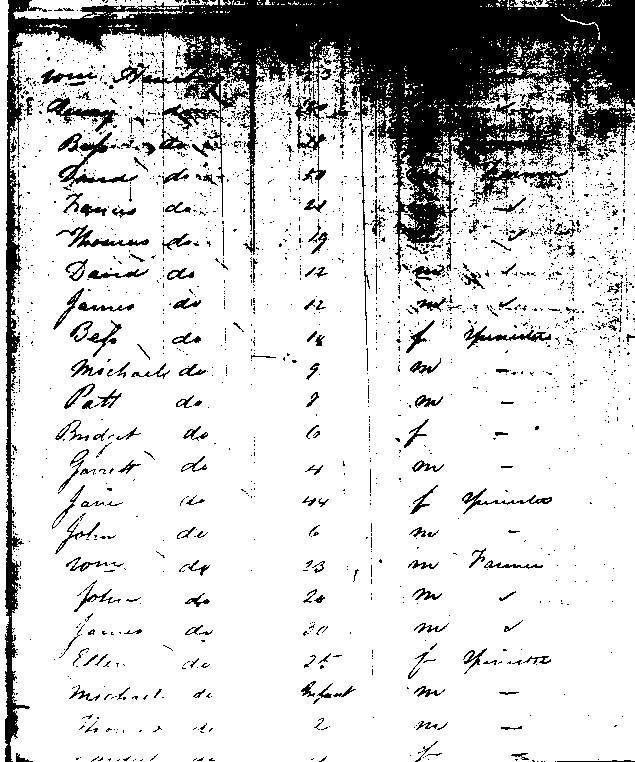 do
Bess do 28
David do 50 Farmer
Francis do 21 ✓
Thomas do 19 ✓
David do 12 m ✓
James do 12 m ✓
Bess do 18 f Spinster
Michael do 9 m –
Patt do 8 m –
Bridget do 6 f –
Garrett do 4 m –
Jane do 44 f Spinster
John do 6 m –
Wm do 23 m Farmer
John do 20 m ✓
James do 30 m ✓
Ellen do 25 f Spinster
Michael do Infant m –
Thomas do 2 m –
do f –